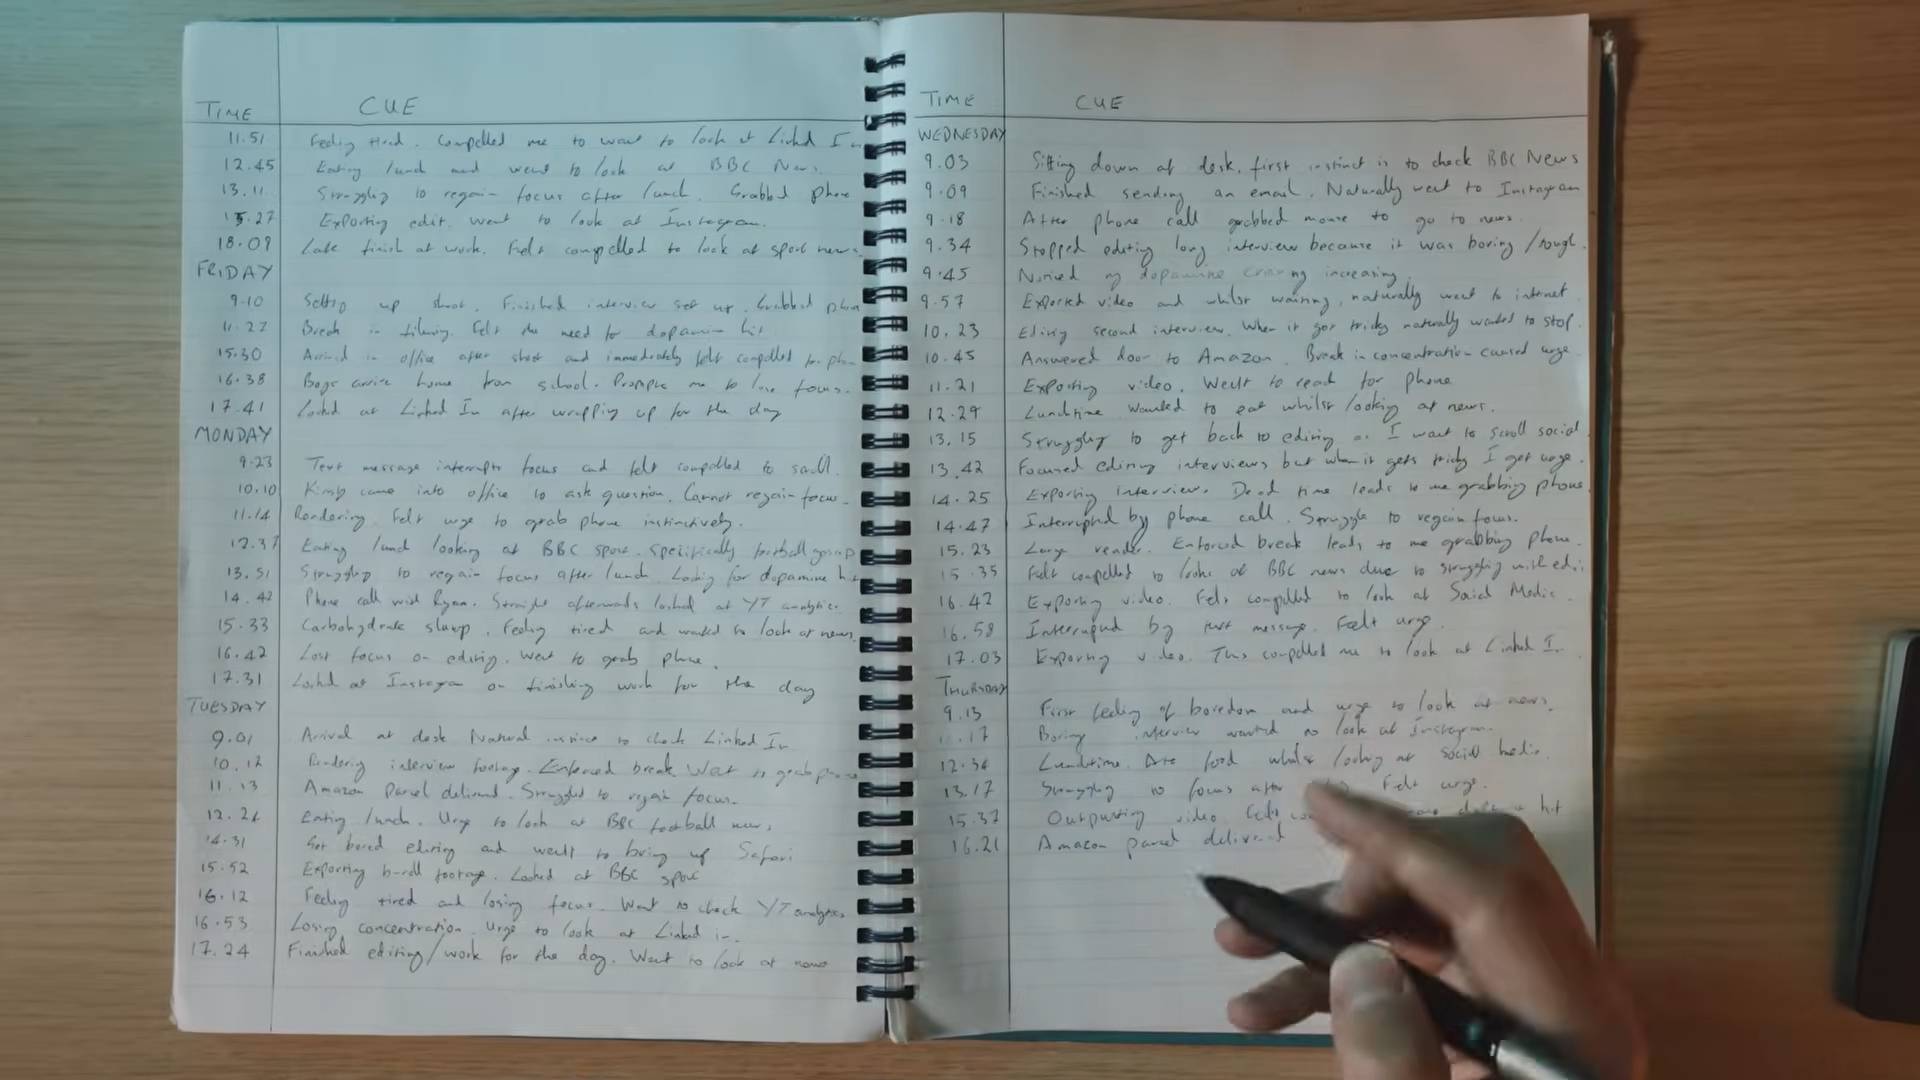 TIME CUE
11.51 Feeling tired. Compelled me to want to look at Linked In
12.45 Eating lunch and went to look at BBC News.
13.11 Struggling to regain focus after lunch. Grabbed phone
15.27 Exporting edit. Went to look at Instagram.
18.09 Late finish at work. Felt compelled to look at sport news.
FRIDAY
9.10 Setting up shoot. Finished interview set up. Grabbed phone
11.27 Break in filming. Felt the need for dopamine hit
15.30 Arrived in office after shoot and immediately felt compelled for phone
16.38 Boys arrive home from school. Prompts me to lose focus.
17.41 Looked at Linked In after wrapping up for the day
MONDAY
9.23 Text message interrupts focus and felt compelled to scroll.
10.10 came into office to ask question. Cannot regain focus.
11.14 Rendering. Felt urge to grab phone instinctively.
12.37 Eating lunch looking at BBC sport. Specifically football gossip
13.51 Struggling to regain focus after lunch. Looking for dopamine hit
14.42 Phone call with Ryan. Straight afterwards looked at YT analytics.
15.33 Carbohydrate slump. Feeling tired and wanted to look at news.
16.42 Lost focus on editing. Went to grab phone.
17.31 Looked at Instagram on finishing work for the day
TUESDAY
9.01 Arrival at desk. Natural instinct to check Linked In
10.12 Rendering interview footage. Enforced break. Went to grab phone
11.13 Amazon Parcel delivered. Struggled to regain focus.
12.21 Eating lunch. Urge to look at BBC football news.
14.31 Got bored editing and went to bring up Safari
15.52 Exporting b-roll footage. Looked at BBC sport
16.12 Feeling tired and losing focus. Went to check YT analytics
16.53 Losing concentration. Urge to look at Linked in.
17.24 Finished editing/work for the day. Went to look at news
TIME CUE
WEDNESDAY
9.03 Sitting down at desk, first instinct is to check BBC News
9.09 Finished sending an email. Naturally went to Instagram
9.18 After phone call grabbed mouse to go to news.
9.34 Stopped editing long interview because it was boring/tough.
9.45 Noticed my dopamine craving increasing.
9.57 Exported video and whilst waiting, naturally went to internet
10.23 Editing second interview. When it got tricky naturally wanted to stop.
10.45 Answered door to Amazon. Break in concentration caused urge
11.21 Exporting video. Went to reach for phone
12.29 Lunchtime. Wanted to eat whilst looking at news.
13.15 Struggling to get back to editing as I want to scroll social
13.42 Focused editing interviews but when it gets tricky I get urge.
14.25 Exporting interview. Dead time leads to me grabbing phone
14.47 Interrupted by phone call. Struggle to regain focus.
15.23 Large render. Enforced break leads to me grabbing phone.
15.35 Felt compelled to look at BBC news due to struggling with edit
16.42 Exporting video. Felt compelled to look at Social Media.
16.58 Interrupted by text message. Felt urge.
17.03 Exporting video. This compelled me to look at Linked In
THURSDAY
9.13 First feeling of boredom and urge to look at news.
11.17 Boring interview wanted to look at Instagram.
12.34 Lunchtime. Ate food whilst looking at social media.
13.17 Struggling to focus after Felt urge.
15.37 Outputting video. Felt hit
16.21 Amazon parcel delivered